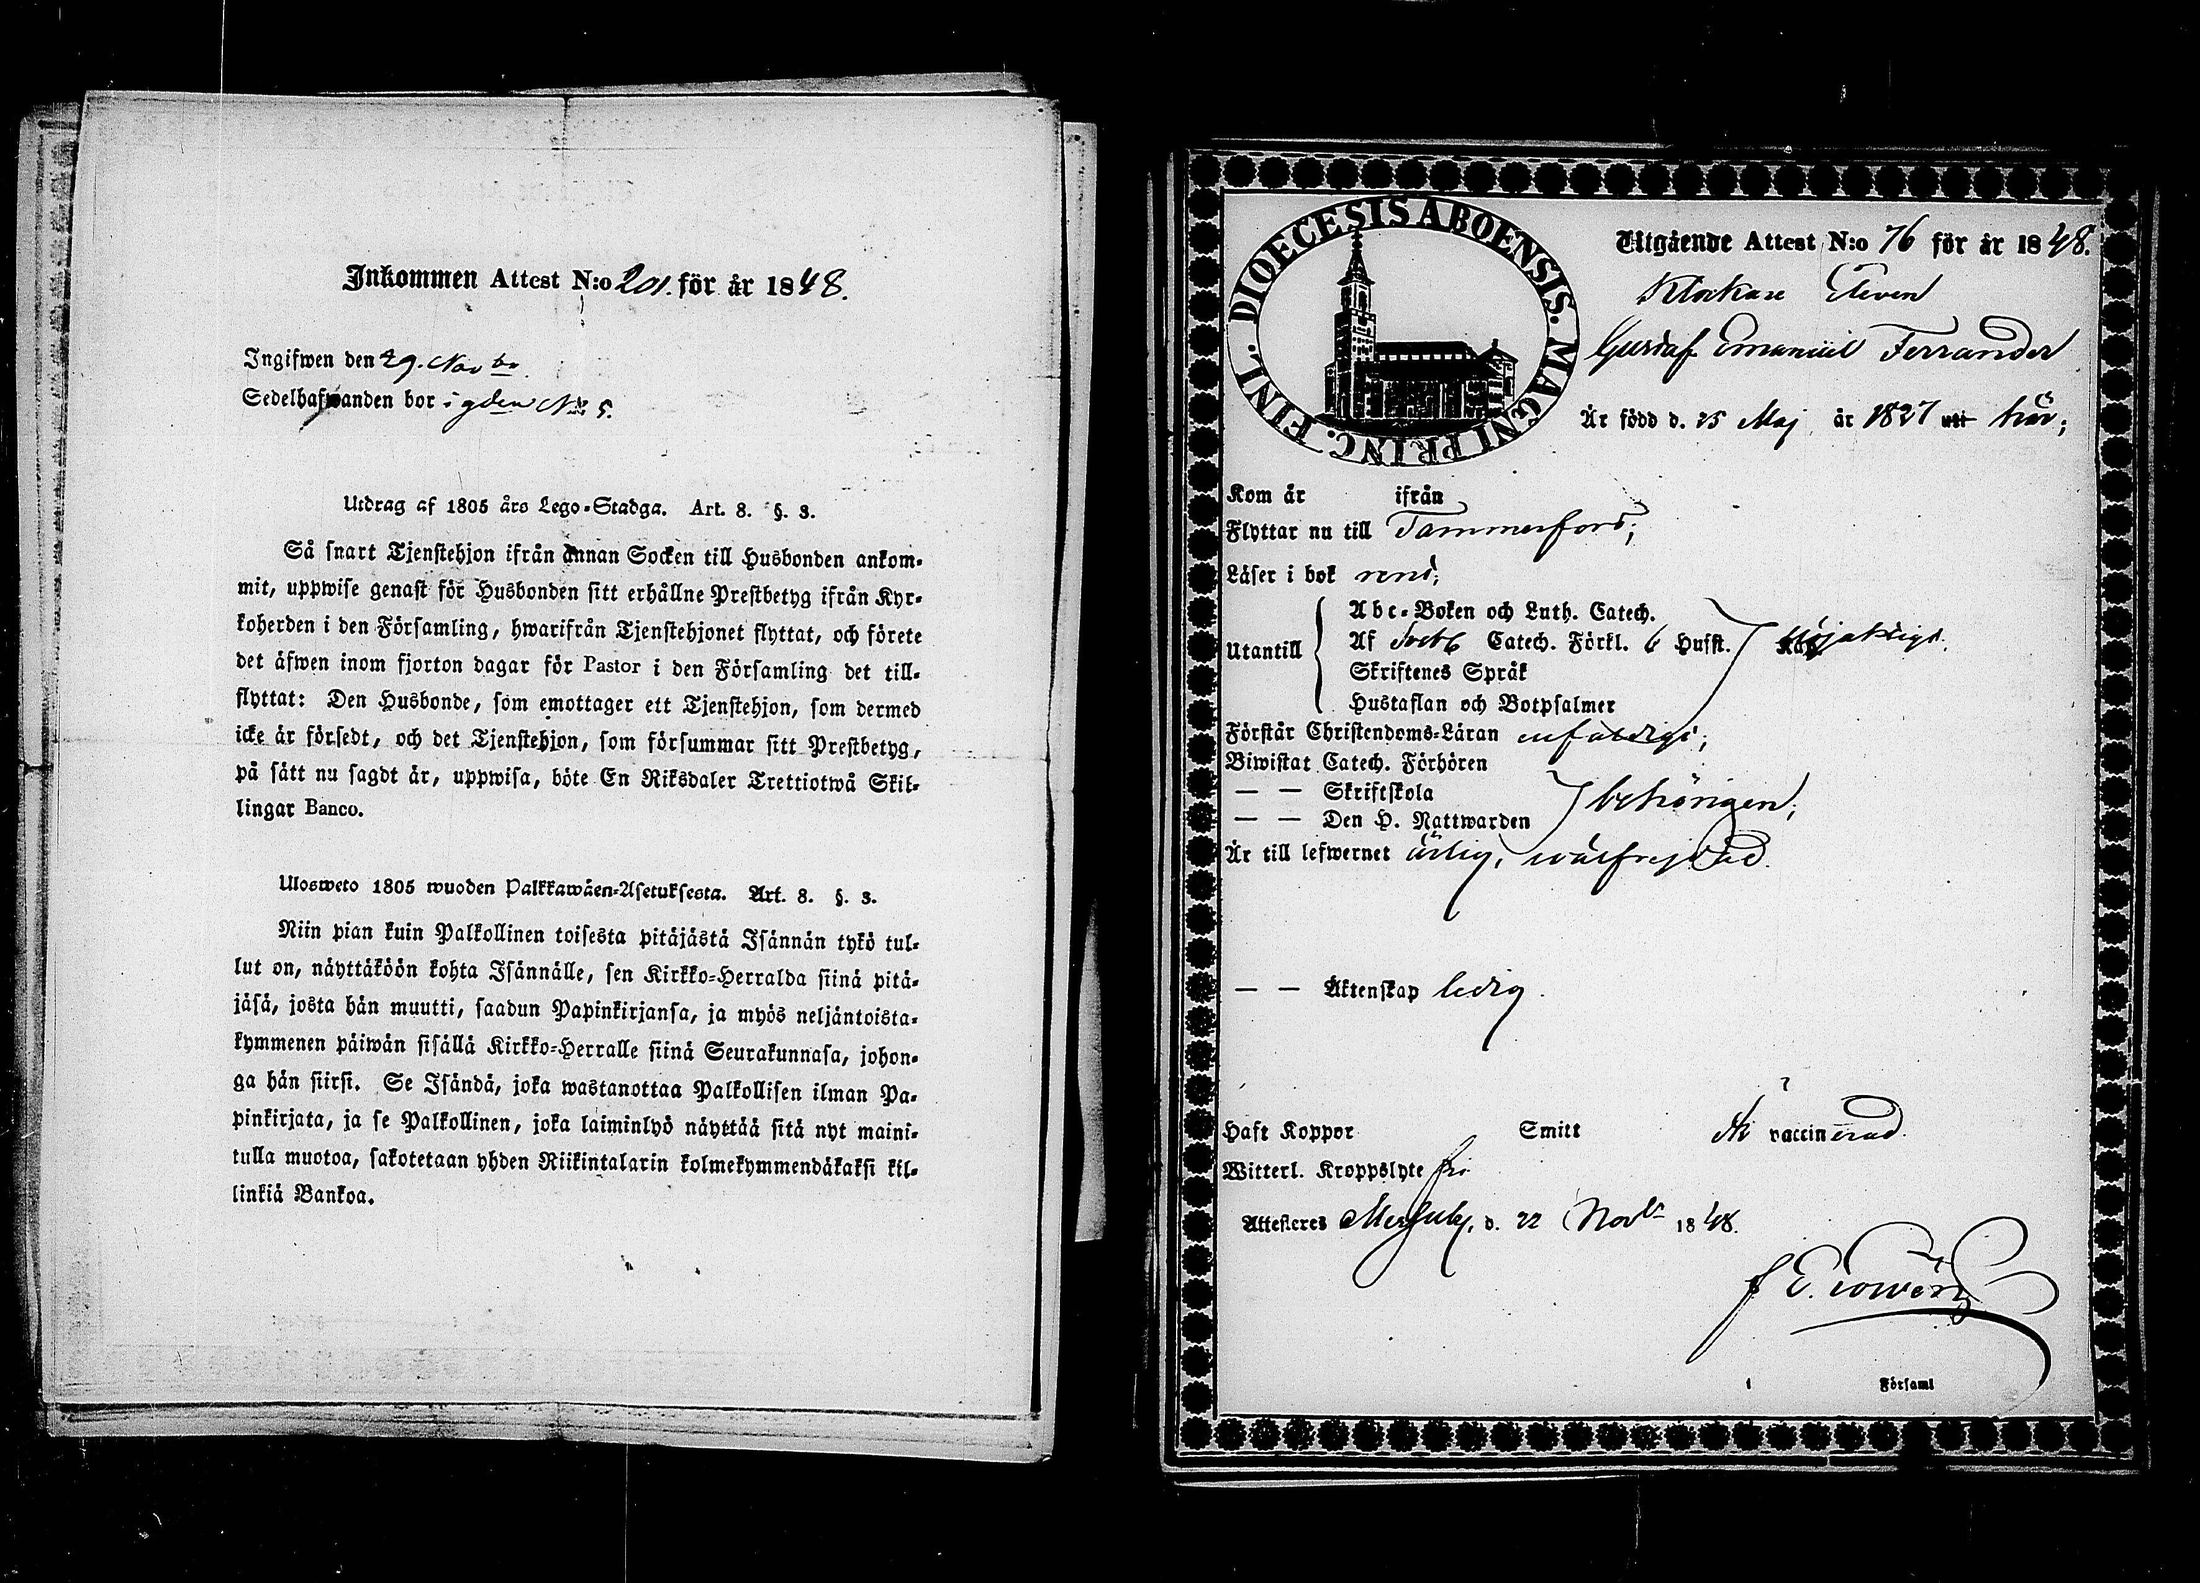 Inkommen Attest N:o 201. för år 1848.
Ingifwen den 29. Nov br
Sedelhafwanden bor i gden No 5.
Utdrag af 1805 års Lego-Stadga. Art. 8. §. 3.
Så snart Tjenstehjon ifrån annan Socken till Husbonden ankom-
mit, uppwise genast för Husbonden sitt erhållne Prestbetyg ifrån Kyr-
koherden i den Församling, hwarifrån Tjenstehjonet flyttat, och förete
det äfwen inom fjorton dagar för Pastor i den Församling det till-
flyttat: Den Husbonde, som emottager ett Tjenstehjon, som dermed
icke är försedt, och det Tjenstehjon, som försummar sitt Prestbetyg,
på sätt nu sagdt är, uppwisa, böte En Riksdaler Trettiotwå Skil-
lingar Banco.
Ulosweto 1805 wuoden Palkkawäen-Asetuksesta. Art. 8. §. 3.
Niin pian kuin Palkollinen toisesta pitäjästä Isännän tykö tul-
lut on, näyttäköön kohta Isännälle, sen Kirkko-Herralda siinä pitä-
jäsä, josta hän muutti, saadun Papinkirjansa, ja myös neljäntoista-
kymmenen päiwän sisällä Kirkko-Herralle siinä Seurakunnasa, johon-
ga hän siirsi. Se Isändä, joka wastanottaa Palkollisen ilman Pa-
pinkirjata, ja se Palkollinen, joka laiminlyö näyttää sitä nyt maini-
tulla muotoa, sakotetaan yhden Riikintalarin kolmekymmendäkaksi kil-
linkiä Bankoa.
DIOECESIS ABOENSIS. MAGNI PRINC. FINL.
Utgående Attest N:o 76 för år 1848.
Klockare Eleven
Gustaf Emanuel Ferrander
Är född d. 25 Maj år 1827 uti här;
Kom år ifrån
Flyttar nu till Tammerfors;
Läser i bok rent;
Abc-Boken och Luth. Catech.
Utantill Af Catech. Förkl. 6 Husst. nöjaktigt.
Skriftenes Språk
Hustaflan och Botpsalmer
Förstår Christendoms-Läran enfaldigt;
Biwistat Catech. Förhören
— — Skriftskola behörigen;
— — Den H. Nattwarden
Är till lefwernet ärlig, wälfrejdad.
— — Äktenskap ledig.
Haft Koppor Smitt vaccinerad.
Witterl. Kroppslyte fri
Attesteres d. 22 Novbr 1848.
Församl